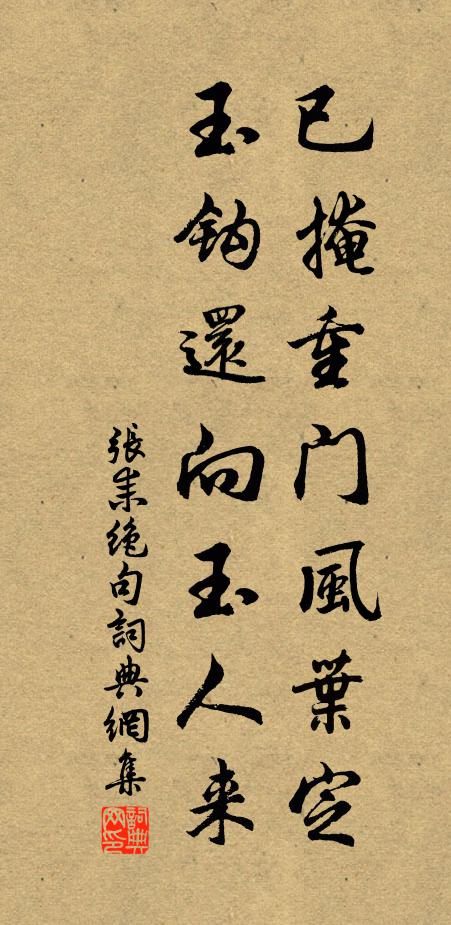 已掩重门風葉定
玉鈎還向玉人来
張耒绝句詞典網集
詞典网印